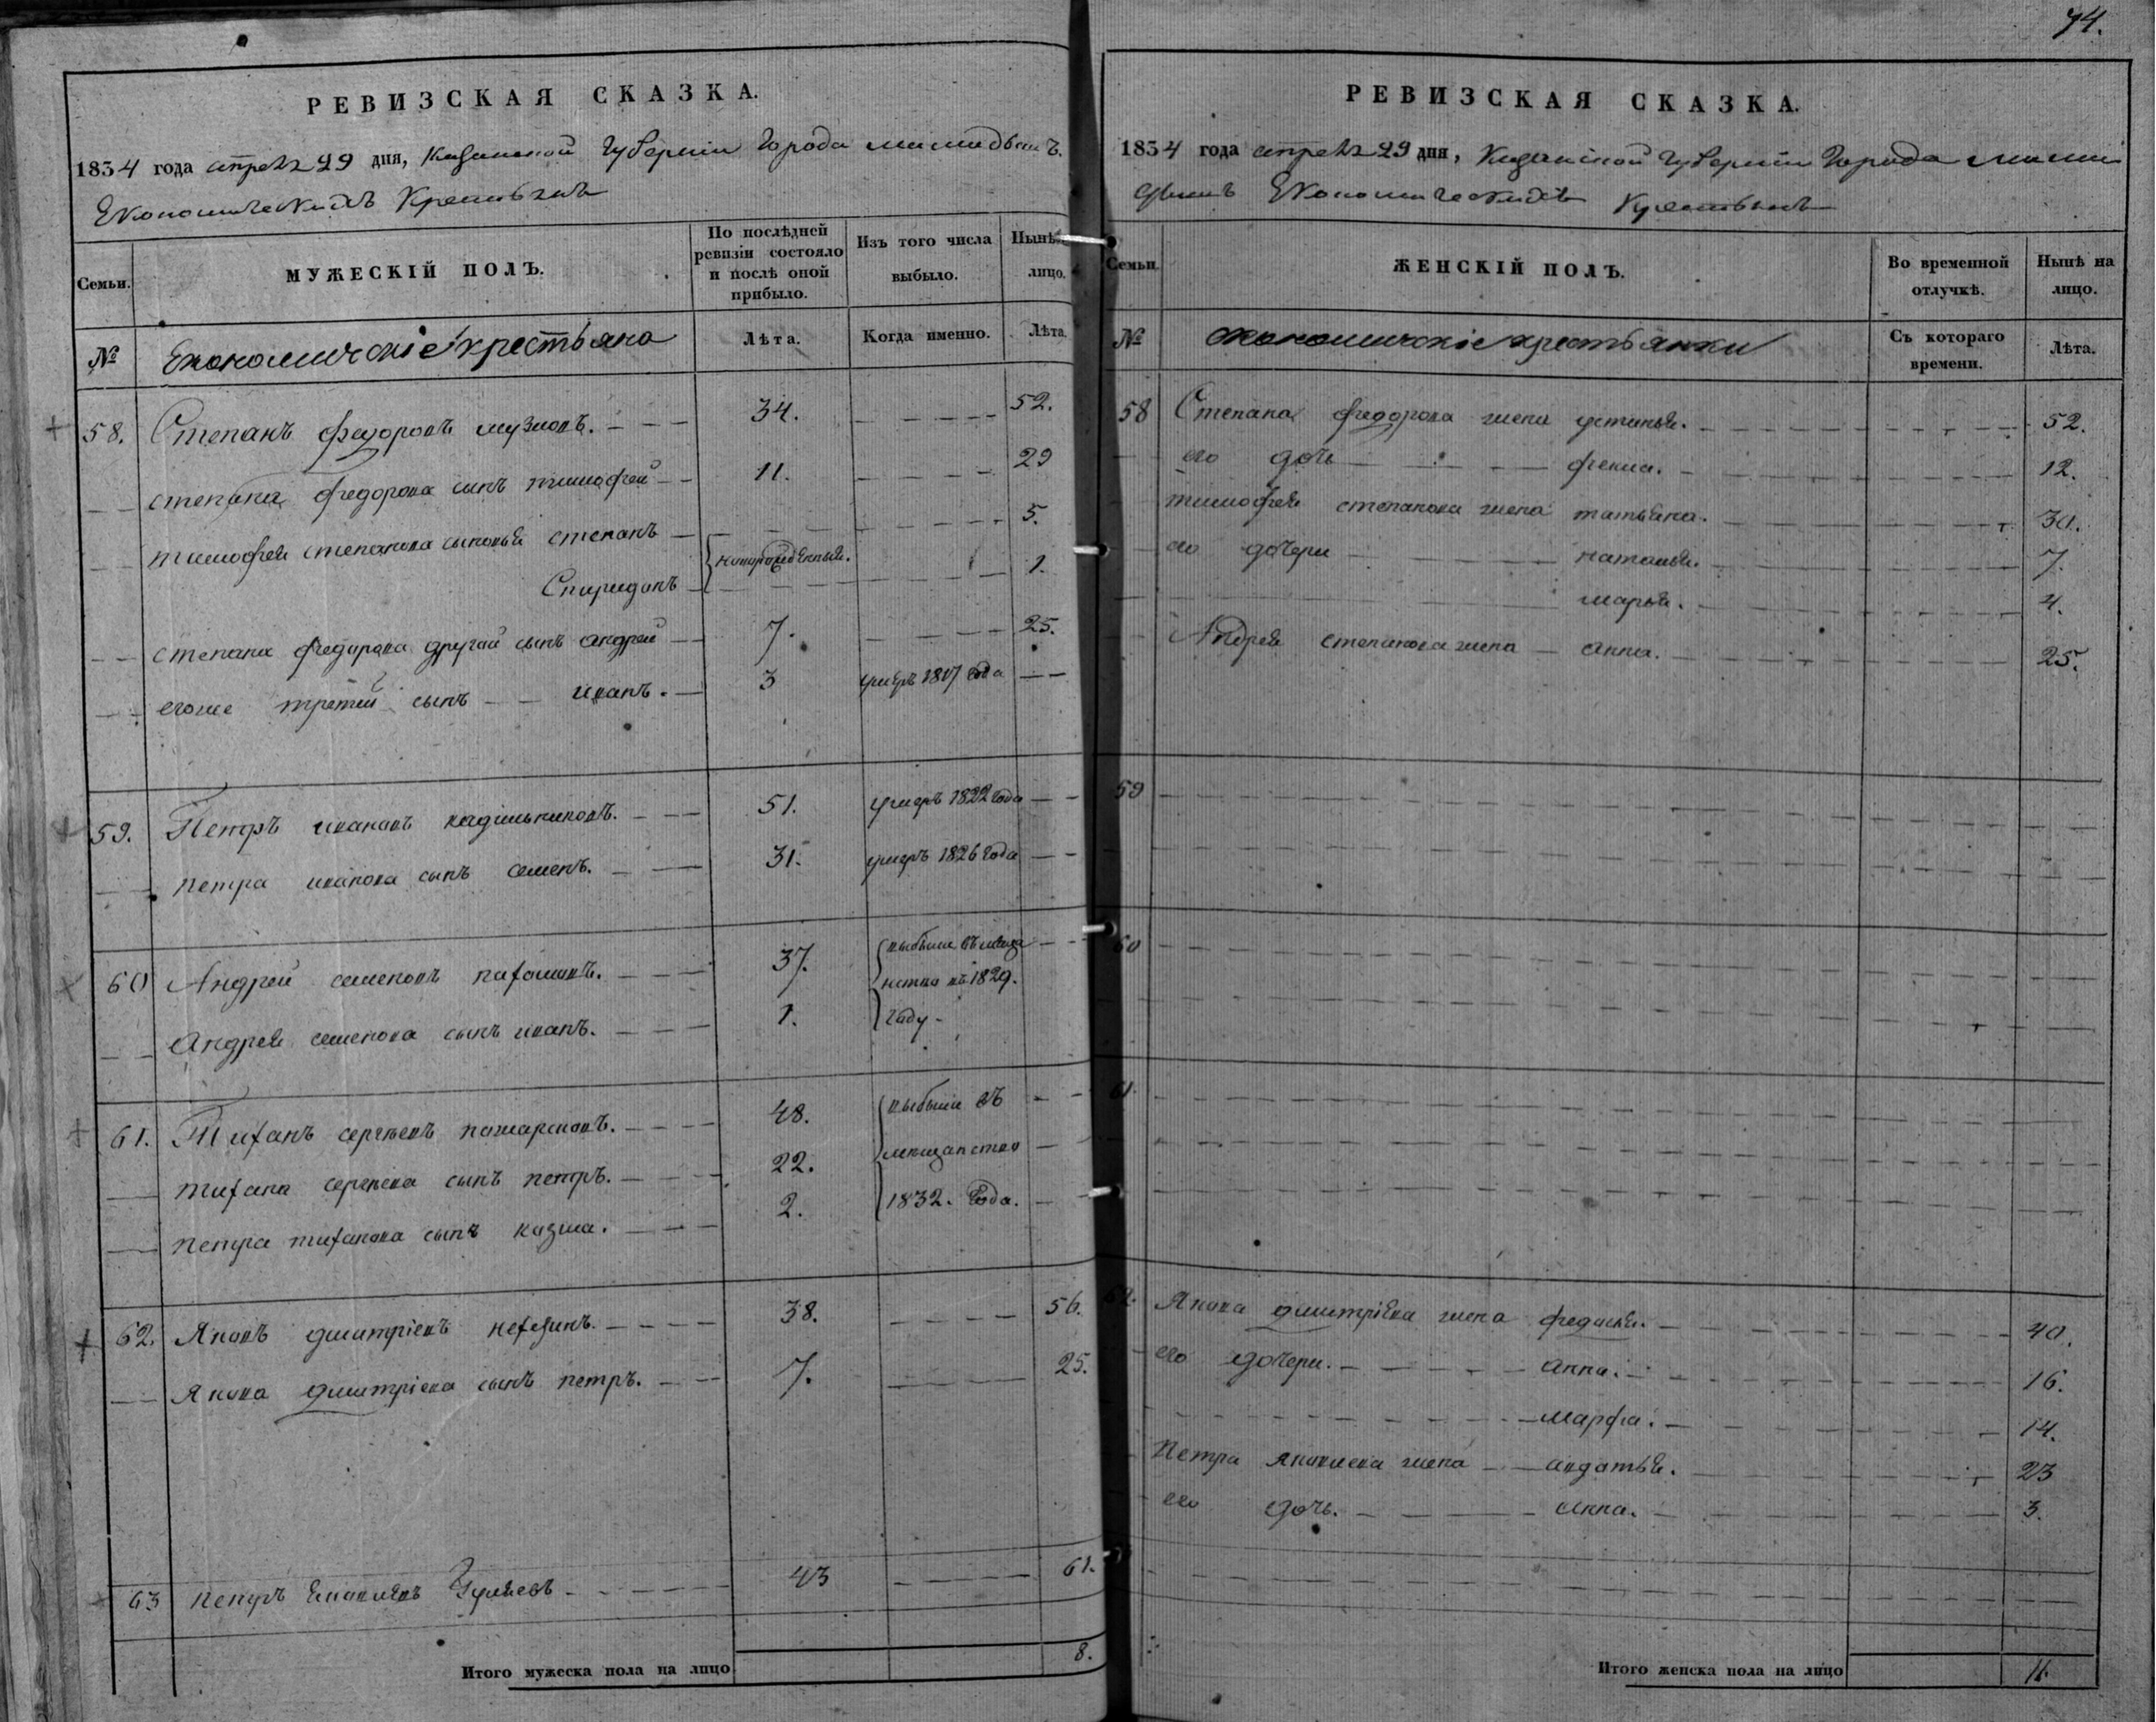 74.
РЕВИЗСКАЯ СКАЗКА.
1834 года апреля 29 дня, Казанской Губернии Города
Економическихъ Крестьянъ
Семьи.
МУЖЕСКІЙ ПОЛЪ.
По послѣдней ревизіи состояло и послѣ оной прибыло.
Изъ того числа выбыло.
Нынѣ лицо.
№
Економическіе крестьяна
Лѣта.
Когда именно.
Лѣта
58. Степанъ федоровъ 34. 52.
степана федорова сынъ тимофей 11. 29
тимофея степанова сыновья степанъ 5.
новорожденныя.
Спиридонъ 1.
степана федорова другой сынъ андрей 7. 25.
егоже третей сынъ иванъ. 3 умеръ 1817 года
59. Петръ ивановъ 51. умеръ 1822 года
петра иванова сынъ семенъ. 31. умеръ 1826 года
60 Андрей семеновъ 37. выбыли въ меща
нства въ 1829.
андрея семенова сынъ иванъ. 1. году.
61. Тиханъ сергѣевъ пожарсковъ. 48. выбыли въ
тихана сергѣева сынъ петръ. 22. мещанство
петра тиханова сынъ казма. 2. 1832. года.
62. Яковъ дмитріевъ 38. 56.
якова дмитріева сынъ петръ. 7. 25.
63 петръ 43 61.
Итого мужеска пола на лицо 8.
РЕВИЗСКАЯ СКАЗКА.
1834 года апреля 29 дня, Казанской Губернии Города
Економическихъ Крестьянъ
Семьи.
ЖЕНСКІЙ ПОЛЪ.
Во временной отлучкѣ.
Нынѣ на лицо.
№
економическіе крестьянки
Съ котораго времени.
Лѣта.
58 Степана федорова жена устинья. 52.
его дочь фекла. 12.
тимофея степанова жена татьяна. 30.
его дочери наталья. 7.
марья. 4.
Андрея степанова жена анна. 25.
59
60
61
62. Якова дмитріева жена 40.
его дочери. анна. 16.
марфа. 14.
петра яковлева жена авдотья. 23
его дочь. анна. 3.
Итого женска пола на лицо 11.